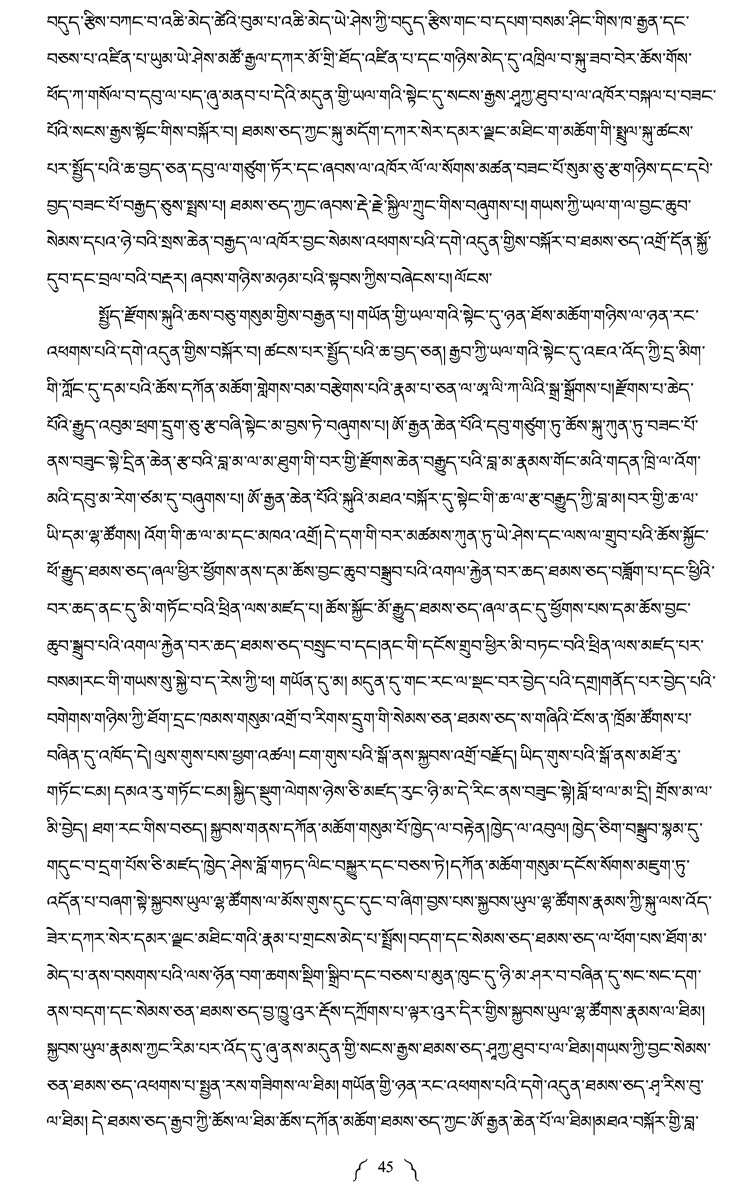 བདུད་རྩིས་བཀང་བ་འཆི་མེད་ཚེའི་བུམ་པ་འཆི་མེད་ཡེ་ཤེས་ཀྱི་བདུད་རྩིས་གང་བ་དཔག་བསམ་ཤིང་གིས་ཁ་རྒྱན་དང་
བཅས་པ་འཛིན་པ་ཡུམ་ཡེ་ཤེས་མཚོ་རྒྱལ་དཀར་མོ་གྲི་ཐོད་འཛིན་པ་དང་གཉིས་མེད་དུ་འཁྲིལ་བ་སྐུ་ཟབ་བེར་ཆོས་གོས་
ཕོད་ཀ་གསོལ་བ་དབུ་ལ་པད་ཞུ་མནབ་པ་དེའི་མདུན་གྱི་ཡལ་གའི་སྟེང་དུ་སངས་རྒྱས་ཤཱཀྱ་ཐུབ་པ་ལ་འཁོར་བསྐལ་པ་བཟང་
པོའི་སངས་རྒྱས་སྟོང་གིས་བསྐོར་བ། ཐམས་ཅད་ཀྱང་སྐུ་མདོག་དཀར་སེར་དམར་ལྗང་མཐིང་ག་མཆོག་གི་སྤྲུལ་སྐུ་ཚངས་
པར་སྤྱོད་པའི་ཆ་བྱད་ཅན་དབུ་ལ་གཙུག་ཏོར་དང་ཞབས་ལ་འཁོར་ལོ་ལ་སོགས་མཚན་བཟང་པོ་སུམ་ཅུ་རྩ་གཉིས་དང་དཔེ་
བྱད་བཟང་པོ་བརྒྱད་ཅུས་སྤྲས་པ། ཐམས་ཅད་ཀྱང་ཞབས་རྡོ་རྗེ་སྐྱིལ་ཀྲུང་གིས་བཞུགས་པ། གཡས་ཀྱི་ཡལ་ག་ལ་བྱང་ཆུབ་
སེམས་དཔའ་ཉེ་བའི་སྲས་ཆེན་བརྒྱད་ལ་འཁོར་བྱང་སེམས་འཕགས་པའི་དགེ་འདུན་གྱིས་བསྐོར་བ་ཐམས་ཅད་འགྲོ་དོན་སྐྱོ་
དུབ་དང་བྲལ་བའི་བརྡར། ཞབས་གཉིས་མཉམ་པའི་སྟབས་ཀྱིས་བཞེངས་པ། ལོངས་
སྤྱོད་རྫོགས་སྐུའི་ཆས་བཅུ་གསུམ་གྱིས་བརྒྱན་པ། གཡོན་གྱི་ཡལ་གའི་སྟེང་དུ་ཉན་ཐོས་མཆོག་གཉིས་ལ་ཉན་རང་
འཕགས་པའི་དགེ་འདུན་གྱིས་བསྐོར་བ། ཚངས་པར་སྤྱོད་པའི་ཆ་བྱད་ཅན། རྒྱབ་ཀྱི་ཡལ་གའི་སྟེང་དུ་འཇའ་འོད་ཀྱི་དྲ་མིག་
གི་ཀློང་དུ་དམ་པའི་ཆོས་དཀོན་མཆོག་གླེགས་བམ་བརྩེགས་པའི་རྣམ་པ་ཅན་ལ་ཨཱ་ལི་ཀཱ་ལིའི་སྒྲ་སྒྲོགས་པ།རྫོགས་པ་ཆེད་
པོའི་རྒྱུད་འབུམ་ཕྲག་དྲུག་ཅུ་རྩ་བཞི་སྟེང་མ་བྱས་ཏེ་བཞུགས་པ། ཨོ་རྒྱན་ཆེན་པོའི་དབུ་གཙུག་ཏུ་ཆོས་སྐུ་ཀུན་ཏུ་བཟང་པོ་
ནས་བཟུང་སྟེ་དྲིན་ཆེན་རྩ་བའི་བླ་མ་ལ་མ་ཐུག་གི་བར་གྱི་རྫོགས་ཆེན་བརྒྱུད་པའི་བླ་མ་རྣམས་གོང་མའི་གདན་ཁྲི་ལ་འོག་
མའི་དབུ་མ་རེག་ཙམ་དུ་བཞུགས་པ། ཨོ་རྒྱན་ཆེན་པོའི་སྐུའི་མཐའ་བསྐོར་དུ་སྟེང་གི་ཆ་ལ་རྩ་བརྒྱུད་ཀྱི་བླ་མ། བར་གྱི་ཆ་ལ་
ཡི་དམ་ལྷ་ཚོགས། འོག་གི་ཆ་ལ་མ་དང་མཁའ་འགྲོ། དེ་དག་གི་བར་མཚམས་ཀུན་ཏུ་ཡེ་ཤེས་དང་ལས་ལ་གྲུབ་པའི་ཆོས་སྐྱོང་
ཕོ་རྒྱུད་ཐམས་ཅད་ཞལ་ཕྱིར་ཕྱོགས་ནས་དམ་ཆོས་བྱང་ཆུབ་བསྒྲུབ་པའི་འགལ་རྐྱེན་བར་ཆད་ཐམས་ཅད་བཟློག་པ་དང་ཕྱིའི་
བར་ཆད་ནང་དུ་མི་གཏོང་བའི་ཕྲིན་ལས་མཛད་པ། ཆོས་སྐྱོང་མོ་རྒྱུད་ཐམས་ཅད་ཞལ་ནང་དུ་ཕྱོགས་པས་དམ་ཆོས་བྱང་
ཆུབ་སྒྲུབ་པའི་འགལ་རྐྱེན་བར་ཆད་ཐམས་ཅད་བསྲུང་བ་དང།ནང་གི་དངོས་གྲུབ་ཕྱིར་མི་བཏང་བའི་ཕྲིན་ལས་མཛད་པར་
བསམ།རང་གི་གཡས་སུ་སྐྱེ་བ་ད་རེས་ཀྱི་ཕ། གཡོན་དུ་མ། མདུན་དུ་གང་རང་ལ་སྡང་བར་བྱེད་པའི་དགྲ།གནོད་པར་བྱེད་པའི་
བགེགས་གཉིས་ཀྱི་ཐོག་དྲང་ཁམས་གསུམ་འགྲོ་བ་རིགས་དྲུག་གི་སེམས་ཅན་ཐམས་ཅད་ས་གཞིའི་ངོས་ན་ཁྲོམ་ཚོགས་པ་
བཞིན་དུ་འཁོད་དེ། ལུས་གུས་པས་ཕྱག་འཚལ། ངག་གུས་པའི་སྒོ་ནས་སྐྱབས་འགྲོ་བརྗོད། ཡིད་གུས་པའི་སྒོ་ནས་མཐོ་རུ་
གཏོང་ངམ། དམའ་རུ་གཏོང་ངམ། སྐྱིད་སྡུག་ལེགས་ཉེས་ཅི་མཛད་རུང་ཉི་མ་དེ་རིང་ནས་བཟུང་སྟེ། བློ་ཕ་ལ་མ་དྲི། གྲོས་མ་ལ་
མི་བྱེད། ཐག་རང་གིས་བཅད། སྐྱབས་གནས་དཀོན་མཆོག་གསུམ་པོ་ཁྱེད་ལ་བརྟེན།ཁྱེད་ལ་འབུལ། ཁྱེད་ཅིག་བསྒྲུབ་སྙམ་དུ་
གདུང་བ་དྲག་པོས་ཅི་མཛད་ཁྱེད་ཤེས་བློ་གཏད་ལིང་བསྐྱུར་དང་བཅས་ཏེ། དཀོན་མཆོག་གསུམ་དངོས་སོགས་མཇུག་ཏུ་
འདོན་པ་བཞག་སྟེ་སྐྱབས་ཡུལ་ལྷ་ཚོགས་ལ་མོས་གུས་དུང་དུང་བ་ཞིག་བྱས་པས་སྐྱབས་ཡུལ་ལྷ་ཚོགས་རྣམས་ཀྱི་སྐུ་ལས་འོད་
ཟེར་དཀར་སེར་དམར་ལྗང་མཐིང་གའི་རྣམ་པ་གྲངས་མེད་པ་སྤྲོས། བདག་དང་སེམས་ཅད་ཐམས་ཅད་ལ་ཕོག་པས་ཐོག་མ་
མེད་པ་ནས་བསགས་པའི་ལས་ཉོན་བག་ཆགས་སྡིག་སྒྲིབ་དང་བཅས་པ་མུན་ཁུང་དུ་ཉི་མ་ཤར་བ་བཞིན་དུ་སང་སང་དག་
ནས་བདག་དང་སེམས་ཅན་ཐམས་ཅད་བྱ་ཁྱུ་འུར་རྡོས་དཀྲོགས་པ་ལྟར་འུར་དིར་གྱིས་སྐྱབས་ཡུལ་ལྷ་ཚོགས་རྣམས་ལ་ཐིམ།
སྐྱབས་ཡུལ་རྣམས་ཀྱང་རིམ་པར་འོད་དུ་ཞུ་ནས་མདུན་གྱི་སངས་རྒྱས་ཐམས་ཅད་ཤཱཀྱ་ཐུབ་པ་ལ་ཐིམ།གཡས་ཀྱི་བྱང་སེམས་
ཅན་ཐམས་ཅད་འཕགས་པ་སྤྱན་རས་གཟིགས་ལ་ཐིམ། གཡོན་གྱི་ཉན་རང་འཕགས་པའི་དགེ་འདུན་ཐམས་ཅད་ཤཱ་རིས་བུ་
ལ་ཐིམ། དེ་ཐམས་ཅད་རྒྱབ་ཀྱི་ཆོས་ལ་ཐིམ་ཆོས་དཀོན་མཆོག་ཐམས་ཅད་ཀྱང་ཨོ་རྒྱན་ཆེན་པོ་ལ་ཐིམ།མཐའ་བསྐོར་གྱི་བླ་
45